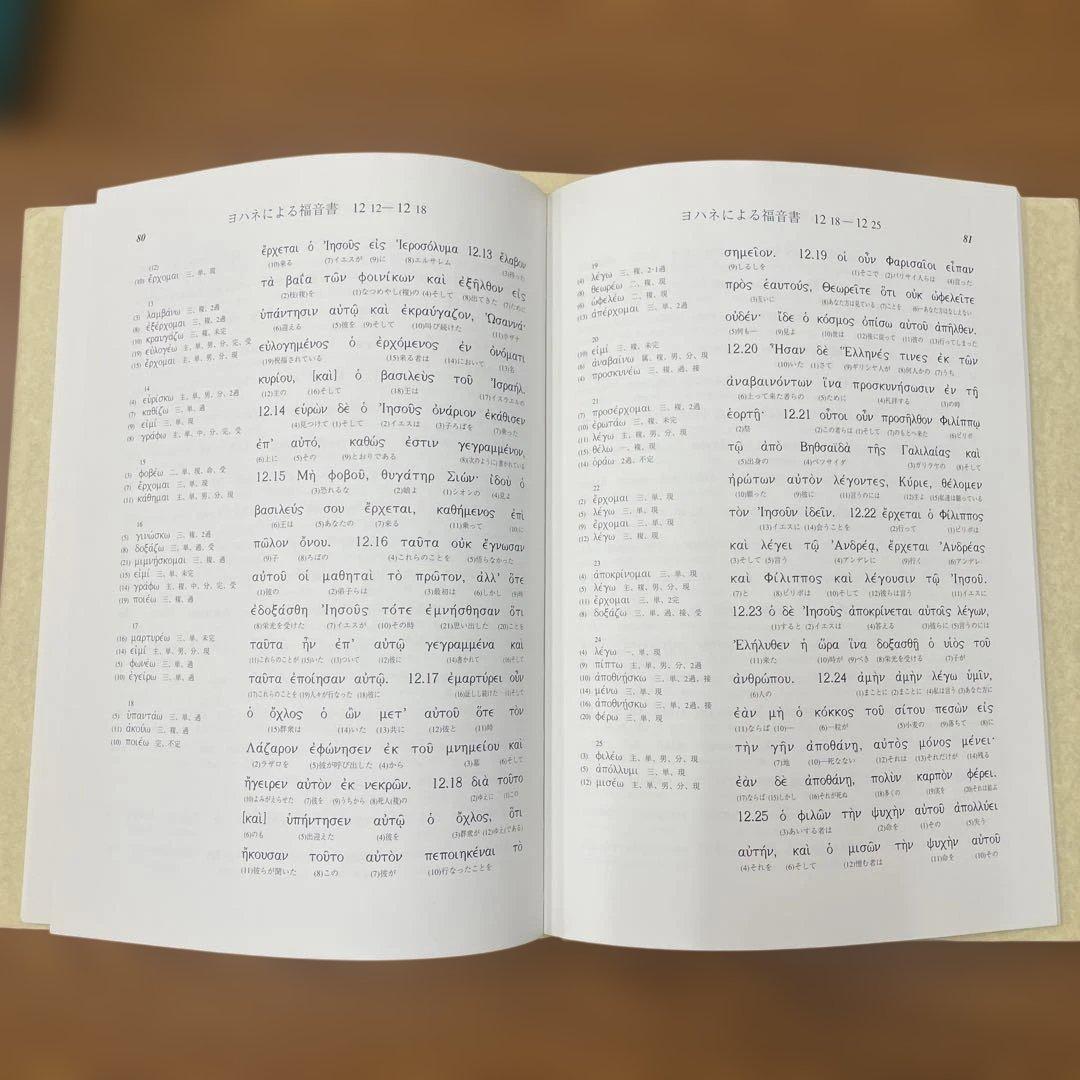 ヨハネによる福音書 12 12―12 18
80
(12)
(10) ἔρχομαι 三、単、現
13
(3) λαμβάνω 三、複、2過
(8) ἐξέρχομαι 三、複、2過
(10) κραυγάζω 三、複、未完
(19) εὐλογέω 主、単、男、分、完、受
(15) ἔρχομαι 主、単、男、分、現
14
(4) εὑρίσκω 主、単、男、分、2過
(7) καθίζω 三、単、過
(8) γράφω 主、単、中、分、完、受
15
(3) φοβέω 二、単、現、命、受
(7) ἔρχομαι 三、単、現
(11) κάθημαι 主、単、男、分、現
16
(5) γινώσκω 三、複、2過
(8) δοξάζω 三、単、過、受
(21) μιμνήσκομαι 三、複、過
(15) εἰμί 三、単、未完
(14) γράφω 主、複、中、分、完、受
(19) ποιέω 三、複、過
17
(16) μαρτυρέω 三、単、未完
(14) εἰμί 主、単、男、分、現
(5) φωνέω 三、単、過
(10) ἐγείρω 三、単、過
18
(5) ὑπαντάω 三、単、過
(11) ἀκούω 三、複、過
(10) ποιέω 完、不定
ἔρχεται ὁ Ἰησοῦς εἰς Ἱεροσόλυμα 12.13 ἔλαβον
(10)来る (7)イエスが (9)に (8)エルサレム (3)持った
τὰ βαΐα τῶν φοινίκων καὶ ἐξῆλθον εἰς
(2)枝(複)を (1)なつめやし(複)の (4)そして (8)出てきた (7)ために
ὑπάντησιν αὐτῷ καὶ ἐκραύγαζον, Ὡσαννά·
(6)迎える (5)彼を (9)そして (10)叫び続けた (11)ホサナ
εὐλογημένος ὁ ἐρχόμενος ἐν ὀνόματι
(19)祝福されている (15)来る者は (14)において (13)名
κυρίου, [καὶ] ὁ βασιλεὺς τοῦ Ἰσραήλ.
(12)主の (16)そして (18)王は (17)イスラエルの
12.14 εὑρὼν δὲ ὁ Ἰησοῦς ὀνάριον ἐκάθισεν
(4)見つけて (1)そして (2)イエスは (3)子ろばを (7)乗った
ἐπ’ αὐτό, καθώς ἐστιν γεγραμμένον,
(6)上に (5)その (9)とおりである (8)(次のように)書かれている
12.15 Μὴ φοβοῦ, θυγάτηρ Σιών· ἰδοὺ ὁ
(3)恐れるな (2)娘よ (1)シオンの (4)見よ
βασιλεύς σου ἔρχεται, καθήμενος ἐπὶ
(6)王は (5)あなたの (7)来る (11)乗って (10)に
πῶλον ὄνου. 12.16 ταῦτα οὐκ ἔγνωσαν
(9)子 (8)ろばの (4)これらのことを (5)悟らなかった
αὐτοῦ οἱ μαθηταὶ τὸ πρῶτον, ἀλλ’ ὅτε
(1)彼の (2)弟子らは (3)最初は (6)しかし (9)時
ἐδοξάσθη Ἰησοῦς τότε ἐμνήσθησαν ὅτι
(8)栄光を受けた (7)イエスが (10)その時 (21)思い出した (20)ことを
ταῦτα ἦν ἐπ’ αὐτῷ γεγραμμένα καὶ
(11)これらのことが (15)いた (13)ついて (12)彼に (14)書かれて (16)そして
ταῦτα ἐποίησαν αὐτῷ. 12.17 ἐμαρτύρει οὖν
(17)これらのことを (19)人々が行なった (18)彼に (16)証しし続けた (1)そして
ὁ ὄχλος ὁ ὢν μετ’ αὐτοῦ ὅτε τὸν
(15)群衆は (14)いた (13)共に (12)彼と (11)時
Λάζαρον ἐφώνησεν ἐκ τοῦ μνημείου καὶ
(2)ラザロを (5)彼が呼び出した (4)から (3)墓 (6)そして
ἤγειρεν αὐτὸν ἐκ νεκρῶν. 12.18 διὰ τοῦτο
(10)よみがえらせた (7)彼を (9)うちから (8)死人(複)の (2)ゆえに (1)この
[καὶ] ὑπήντησεν αὐτῷ ὁ ὄχλος, ὅτι
(6)のも (5)出迎えた (4)彼を (3)群衆が (12)ゆえ(である)
ἤκουσαν τοῦτο αὐτὸν πεποιηκέναι τὸ
(11)彼らが聞いた (8)この (7)彼が (10)行なったことを
ヨハネによる福音書 12 18―12 25
81
19
(4) λέγω 三、複、2-1過
(8) θεωρέω 二、複、現
(6) ὠφελέω 二、複、現
(13) ἀπέρχομαι 三、単、2過
20
(10) εἰμί 三、複、未完
(6) ἀναβαίνω 属、複、男、分、現
(4) προσκυνέω 三、複、過、接
21
(7) προσέρχομαι 三、複、2過
(10) ἐρωτάω 三、複、未完
(11) λέγω 主、複、男、分、現
(15) θέλω 一、複、現
(14) ὁράω 2過、不定
22
(2) ἔρχομαι 三、単、現
(5) λέγω 三、単、現
(9) ἔρχομαι 三、単、現
(12) λέγω 三、複、現
23
(4) ἀποκρίνομαι 三、単、現
(5) λέγω 主、単、男、分、現
(11) ἔρχομαι 三、単、2完
(8) δοξάζω 三、単、過、接、受
24
(4) λέγω 一、単、現
(9) πίπτω 主、単、男、分、2過
(10) ἀποθνῄσκω 三、単、2過、接
(14) μένω 三、単、現
(16) ἀποθνῄσκω 三、単、2過、接
(20) φέρω 三、単、現
25
(3) φιλέω 主、単、男、分、現
(5) ἀπόλλυμι 三、単、現
(12) μισέω 主、単、男、分、現
σημεῖον. 12.19 οἱ οὖν Φαρισαῖοι εἶπαν
(9)しるしを (1)そこで (2)パリサイ人らは (4)言った
πρὸς ἑαυτούς, Θεωρεῖτε ὅτι οὐκ ὠφελεῖτε
(3)互いに (8)あなた方は見ている (7)ことを (6)―あなた方はなしえない
οὐδέν· ἴδε ὁ κόσμος ὀπίσω αὐτοῦ ἀπῆλθεν.
(5)何も― (9)見よ (10)世は (12)後に従って (11)彼の (13)行ってしまった
12.20 Ἦσαν δὲ Ἕλληνές τινες ἐκ τῶν
(10)いた (1)さて (9)ギリシヤ人が (8)何人かの (7)うち
ἀναβαινόντων ἵνα προσκυνήσωσιν ἐν τῇ
(6)上って来た者らの (5)ために (4)礼拝する (3)の時
ἑορτῇ· 12.21 οὗτοι οὖν προσῆλθον Φιλίππῳ
(2)祭 (2)この者らは (1)そして (7)のもとへ来た (6)ピリポ
τῷ ἀπὸ Βηθσαϊδὰ τῆς Γαλιλαίας καὶ
(5)出身の (4)ベツサイダ (3)ガリラヤの (8)そして
ἠρώτων αὐτὸν λέγοντες, Κύριε, θέλομεν
(10)願った (9)彼に (11)言うのには (12)主よ (15)私達は願っている
τὸν Ἰησοῦν ἰδεῖν. 12.22 ἔρχεται ὁ Φίλιππος
(13)イエスに (14)会うことを (2)行って (1)ピリポは
καὶ λέγει τῷ Ἀνδρέᾳ, ἔρχεται Ἀνδρέας
(3)そして (5)言う (4)アンデレに (9)行く (6)アンデレ
καὶ Φίλιππος καὶ λέγουσιν τῷ Ἰησοῦ.
(7)と (8)ピリポは (10)そして (12)彼らは言う (11)イエスに
12.23 ὁ δὲ Ἰησοῦς ἀποκρίνεται αὐτοῖς λέγων,
(1)すると (2)イエスは (4)答える (3)彼らに (5)言うのには
Ἐλήλυθεν ἡ ὥρα ἵνα δοξασθῇ ὁ υἱὸς τοῦ
(11)来た (10)時が (9)べき (8)栄光を受ける (7)子が
ἀνθρώπου. 12.24 ἀμὴν ἀμὴν λέγω ὑμῖν,
(6)人の (1)まことに (2)まことに (4)私は言う (3)あなた方に
ἐὰν μὴ ὁ κόκκος τοῦ σίτου πεσὼν εἰς
(11)ならば (10)― (6)一粒が (5)小麦の (9)落ちて (8)に
τὴν γῆν ἀποθάνῃ, αὐτὸς μόνος μένει·
(7)地 (10)―死なない (12)それは (13)それだけが (14)残る
ἐὰν δὲ ἀποθάνῃ, πολὺν καρπὸν φέρει.
(17)ならば (15)しかし (16)それが死ぬ (18)多くの (19)実を (20)それは結ぶ
12.25 ὁ φιλῶν τὴν ψυχὴν αὐτοῦ ἀπολλύει
(3)あいする者は (2)命を (1)その (5)失う
αὐτήν, καὶ ὁ μισῶν τὴν ψυχὴν αὐτοῦ
(4)それを (6)そして (12)憎む者は (11)命を (10)その